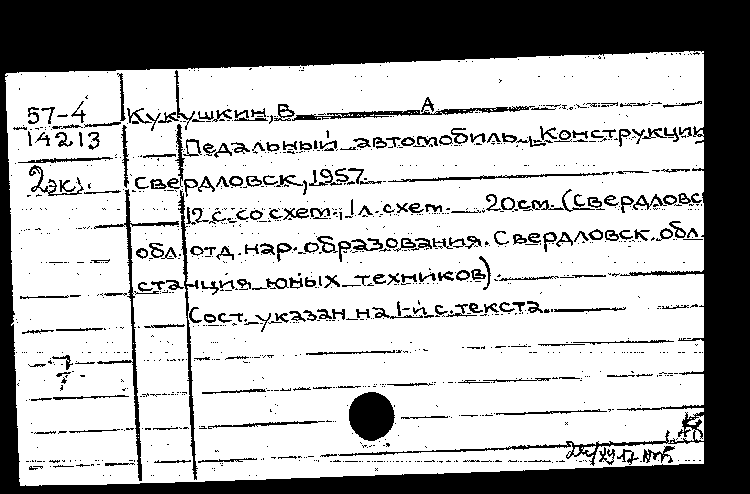 57-4 Кукушкин, В А
14213 Педальный автомобиль. Конструкции
2 экз. Свердловск, 1957.
12 с. со схем., 1 л. схем. 20 см. (Свердловс
обл. отд. нар. образования. Свердловск. обл.
станция юных техников).
Сост. указан на 1-й с. текста.
7.